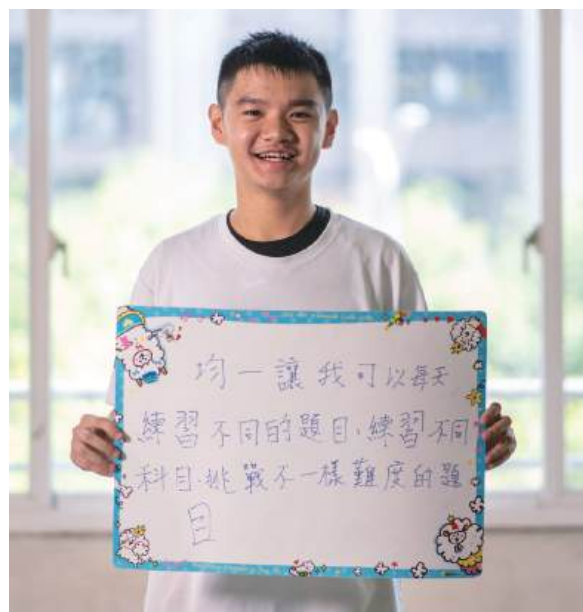 均一讓我可以每天
練習不同的題目,練習不同
科目,挑戰不一樣難度的題
目